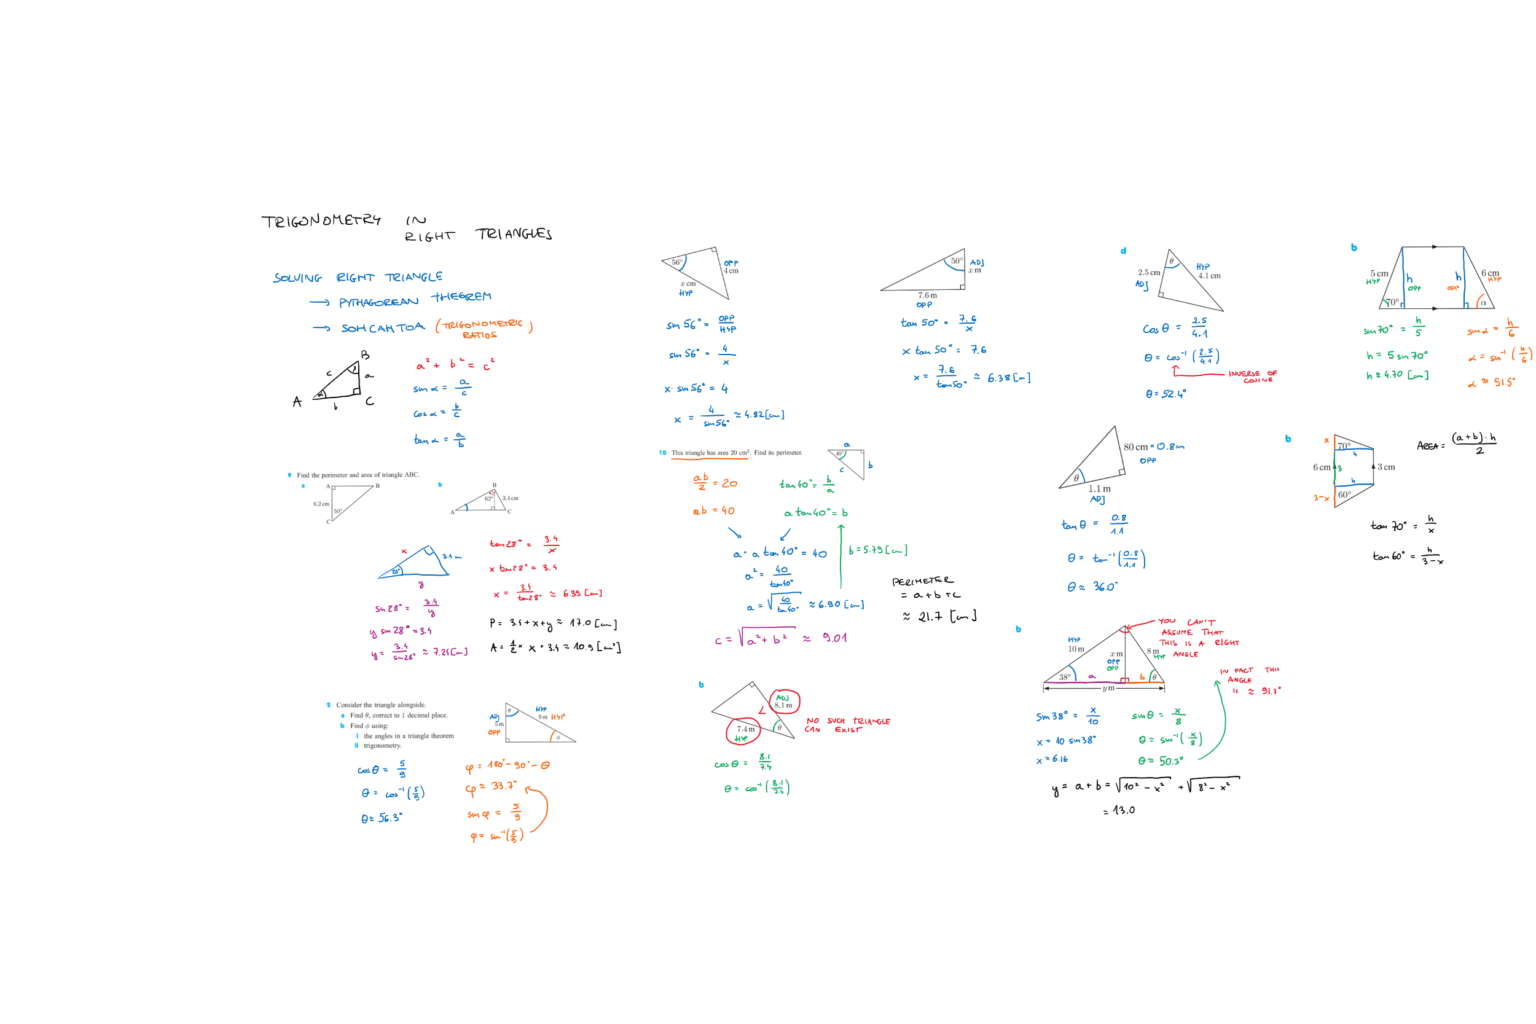 TRIGONOMETRY IN
RIGHT TRIANGLES
SOLVING RIGHT TRIANGLE
→ PYTHAGOREAN THEOREM
→ SOHCAHTOA (TRIGONOMETRIC RATIOS)
B
c
a
A
α
b
C
a² + b² = c²
sin α = a/c
cos α = b/c
tan α = a/b
9 Find the perimeter and area of triangle ABC.
a
A
B
6.2 cm
50°
C
b
B
62°
3.4 cm
A
C
x
3.4 cm
28°
y
tan 28° = 3.4/x
x tan 28° = 3.4
x = 3.4/tan 28° ≈ 6.39 [cm]
sin 28° = 3.4/y
y sin 28° = 3.4
y = 3.4/sin 28° ≈ 7.24 [cm]
P = 3.4 + x + y ≈ 17.0 [cm]
A = 1/2 · x · 3.4 ≈ 10.9 [cm²]
2 Consider the triangle alongside.
a Find θ, correct to 1 decimal place.
b Find φ using:
i the angles in a triangle theorem
ii trigonometry.
ADJ
5 m
OPP
θ
HYP
9 m HYP
φ
cos θ = 5/9
θ = cos⁻¹(5/9)
θ ≈ 56.3°
φ = 180° - 90° - θ
φ = 33.7°
sin φ = 5/9
φ = sin⁻¹(5/9)
56°
OPP
4 cm
x cm
HYP
sin 56° = OPP/HYP
sin 56° = 4/x
x · sin 56° = 4
x = 4/sin 56° ≈ 4.82 [cm]
50°
ADJ
x m
7.6 m
OPP
tan 50° = 7.6/x
x tan 50° = 7.6
x = 7.6/tan 50° ≈ 6.38 [m]
10 This triangle has area 20 cm². Find its perimeter.
a
40°
b
c
ab/2 = 20
ab = 40
tan 40° = b/a
a tan 40° = b
a · a tan 40° = 40
a² = 40/tan 40°
a = √(40/tan 40°) ≈ 6.90 [cm]
b = 5.79 [cm]
c = √(a² + b²) ≈ 9.01
PERIMETER
= a + b + c
≈ 21.7 [cm]
b
ADJ
8.1 m
<
7.4 m
HYP
θ
NO SUCH TRIANGLE
CAN EXIST
cos θ = 8.1/7.4
θ = cos⁻¹(8.1/7.4)
d
θ
2.5 cm
ADJ
HYP
4.1 cm
cos θ = 2.5/4.1
θ = cos⁻¹(2.5/4.1)
INVERSE OF
COSINE
θ = 52.4°
80 cm = 0.8 m
OPP
θ
1.1 m
ADJ
tan θ = 0.8/1.1
θ = tan⁻¹(0.8/1.1)
θ ≈ 36.0°
b
HYP
10 m
x m
OPP
OPP
8 m
HYP
38°
a
b
θ
y m
YOU CAN'T
ASSUME THAT
THIS IS A RIGHT
ANGLE
IN FACT THIS
ANGLE
IS ≈ 91.7°
sin 38° = x/10
x = 10 sin 38°
x = 6.16
sin θ = x/8
θ = sin⁻¹(x/8)
θ = 50.3°
y = a + b = √(10² - x²) + √(8² - x²)
= 13.0
b
5 cm
HYP
h
OPP
h
OPP
6 cm
HYP
70°
α
sin 70° = h/5
h = 5 sin 70°
h ≈ 4.70 [cm]
sin α = h/6
α = sin⁻¹(h/6)
α ≈ 51.5°
b
x
70°
h
6 cm
3
3 cm
h
3-x
60°
AREA = (a+b)·h/2
tan 70° = h/x
tan 60° = h/3-x